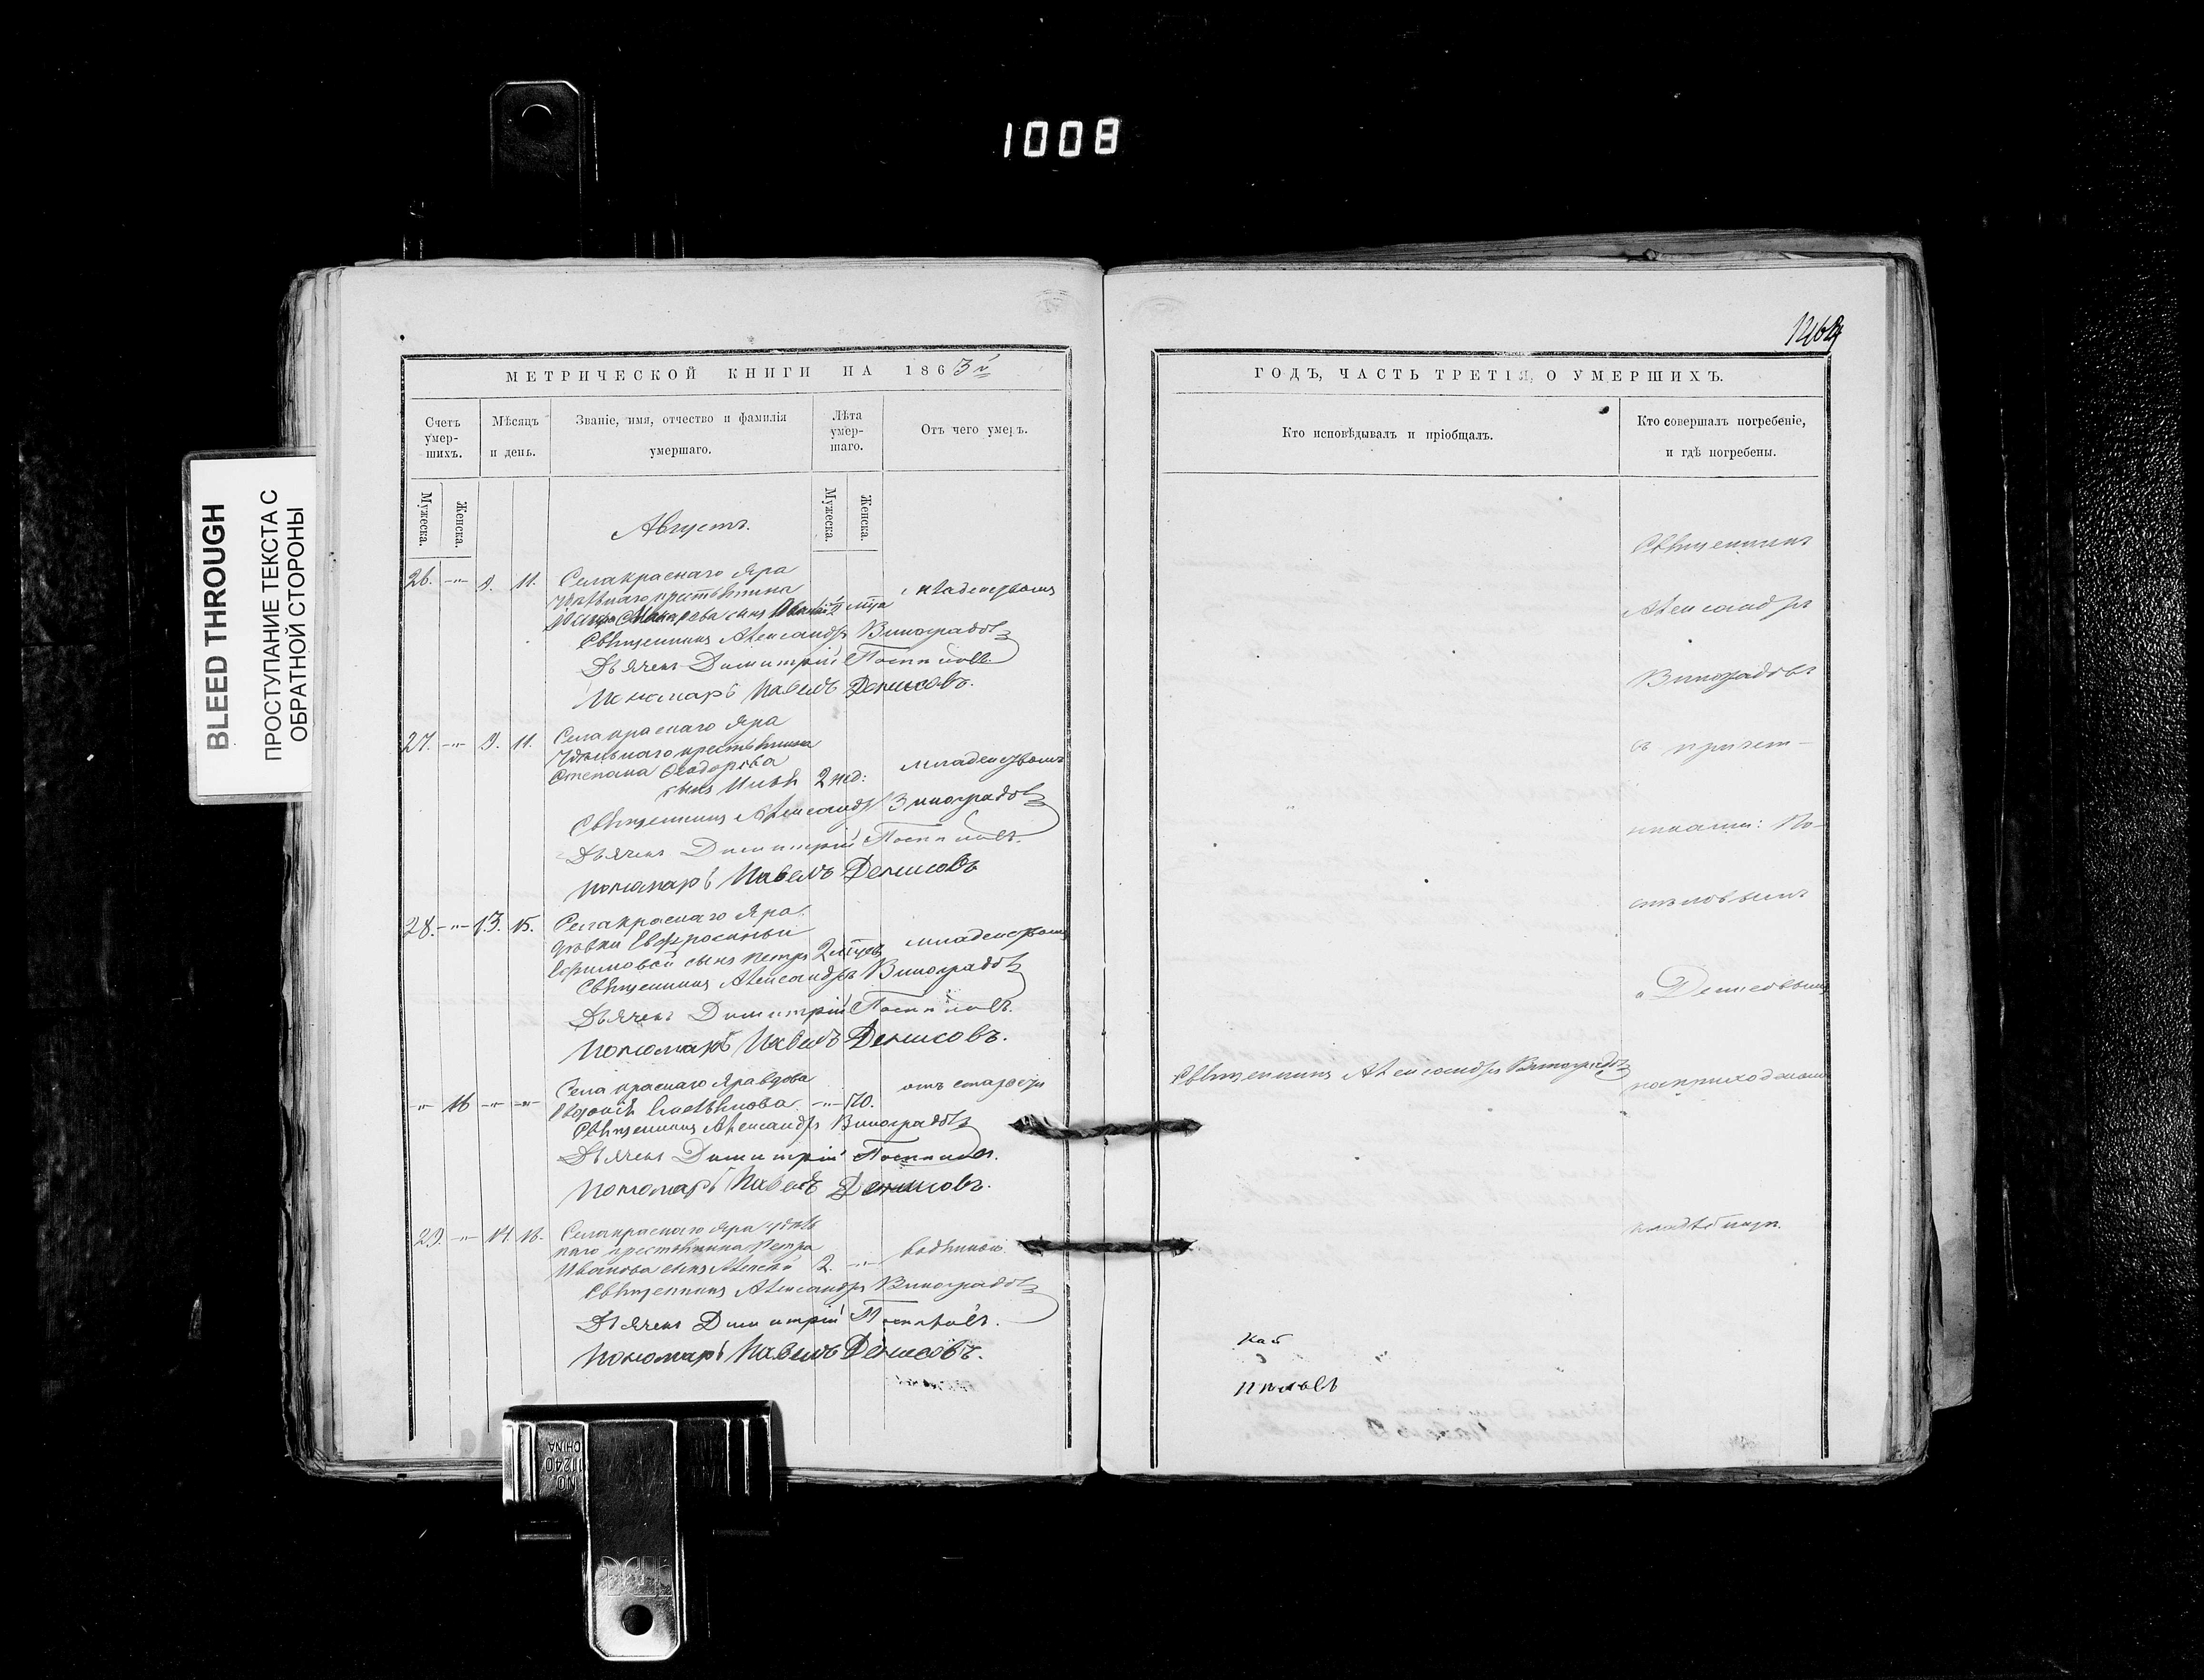 1008
BLEED THROUGH
ПРОСТУПАНИЕ ТЕКСТА С
ОБРАТНОЙ СТОРОНЫ
МЕТРИЧЕСКОЙ КНИГИ НА 1863й
Счетъ умер-шихъ.
Мѣсяцъ и день.
Званіе, имя, отчество и фамилія умершаго.
Лѣта умер-шаго.
Отъ чего умеръ.
Мужеска.
Женска.
Мужеска.
Женска.
Августъ.
26. -"- 9. 11. Села Краснаго Яра
удѣльнаго крестьянина
Макарова сынъ младенческою
Священникъ Александръ Виноградовъ
Дьячекъ Димитрій Постниковъ
Пономарь Павелъ Денисовъ.
27. -"- 9. 11. Села Краснаго Яра
удѣльнаго крестьянина
Степана Ѳеодорова
сынъ Илья 2 нед: младенческою
Священникъ Александръ Виноградовъ
Дьячекъ Димитрій
Пономарь Павелъ Денисовъ
28. -"- 13. 15. Села Краснаго Яра
дѣвки Евфросиньи
Ефимовой сынъ Петръ 2 младенческою
Священникъ Александръ Виноградовъ
Дьячекъ Димитрій
Пономарь Павелъ Денисовъ.
-"- 16 -"- -"- Села Краснаго Яра вдова
-"- 70. отъ старости
Священникъ Александръ Виноградовъ
Дьячекъ Димитрій
Пономарь Павелъ Денисовъ.
29. -"- 14. 16. Села Краснаго Яра удѣль
наго крестьянина Петра
Иванова сынъ Алексѣй 2. -"-
Священникъ Александръ Виноградовъ
Дьячекъ Димитрій
Пономарь Павелъ Денисовъ.
NO. 11240
CHINA
ГОДЪ, ЧАСТЬ ТРЕТІЯ, О УМЕРШИХЪ.
Кто исповѣдывалъ и пріобщалъ.
Кто совершалъ погребеніе,
и гдѣ погребены.
Священникъ
Александръ
Виноградовъ
съ причет-
никами: По-
и Денисовымъ
Священникъ Александръ Виноградовъ
на приходскомъ
кладбищѣ.